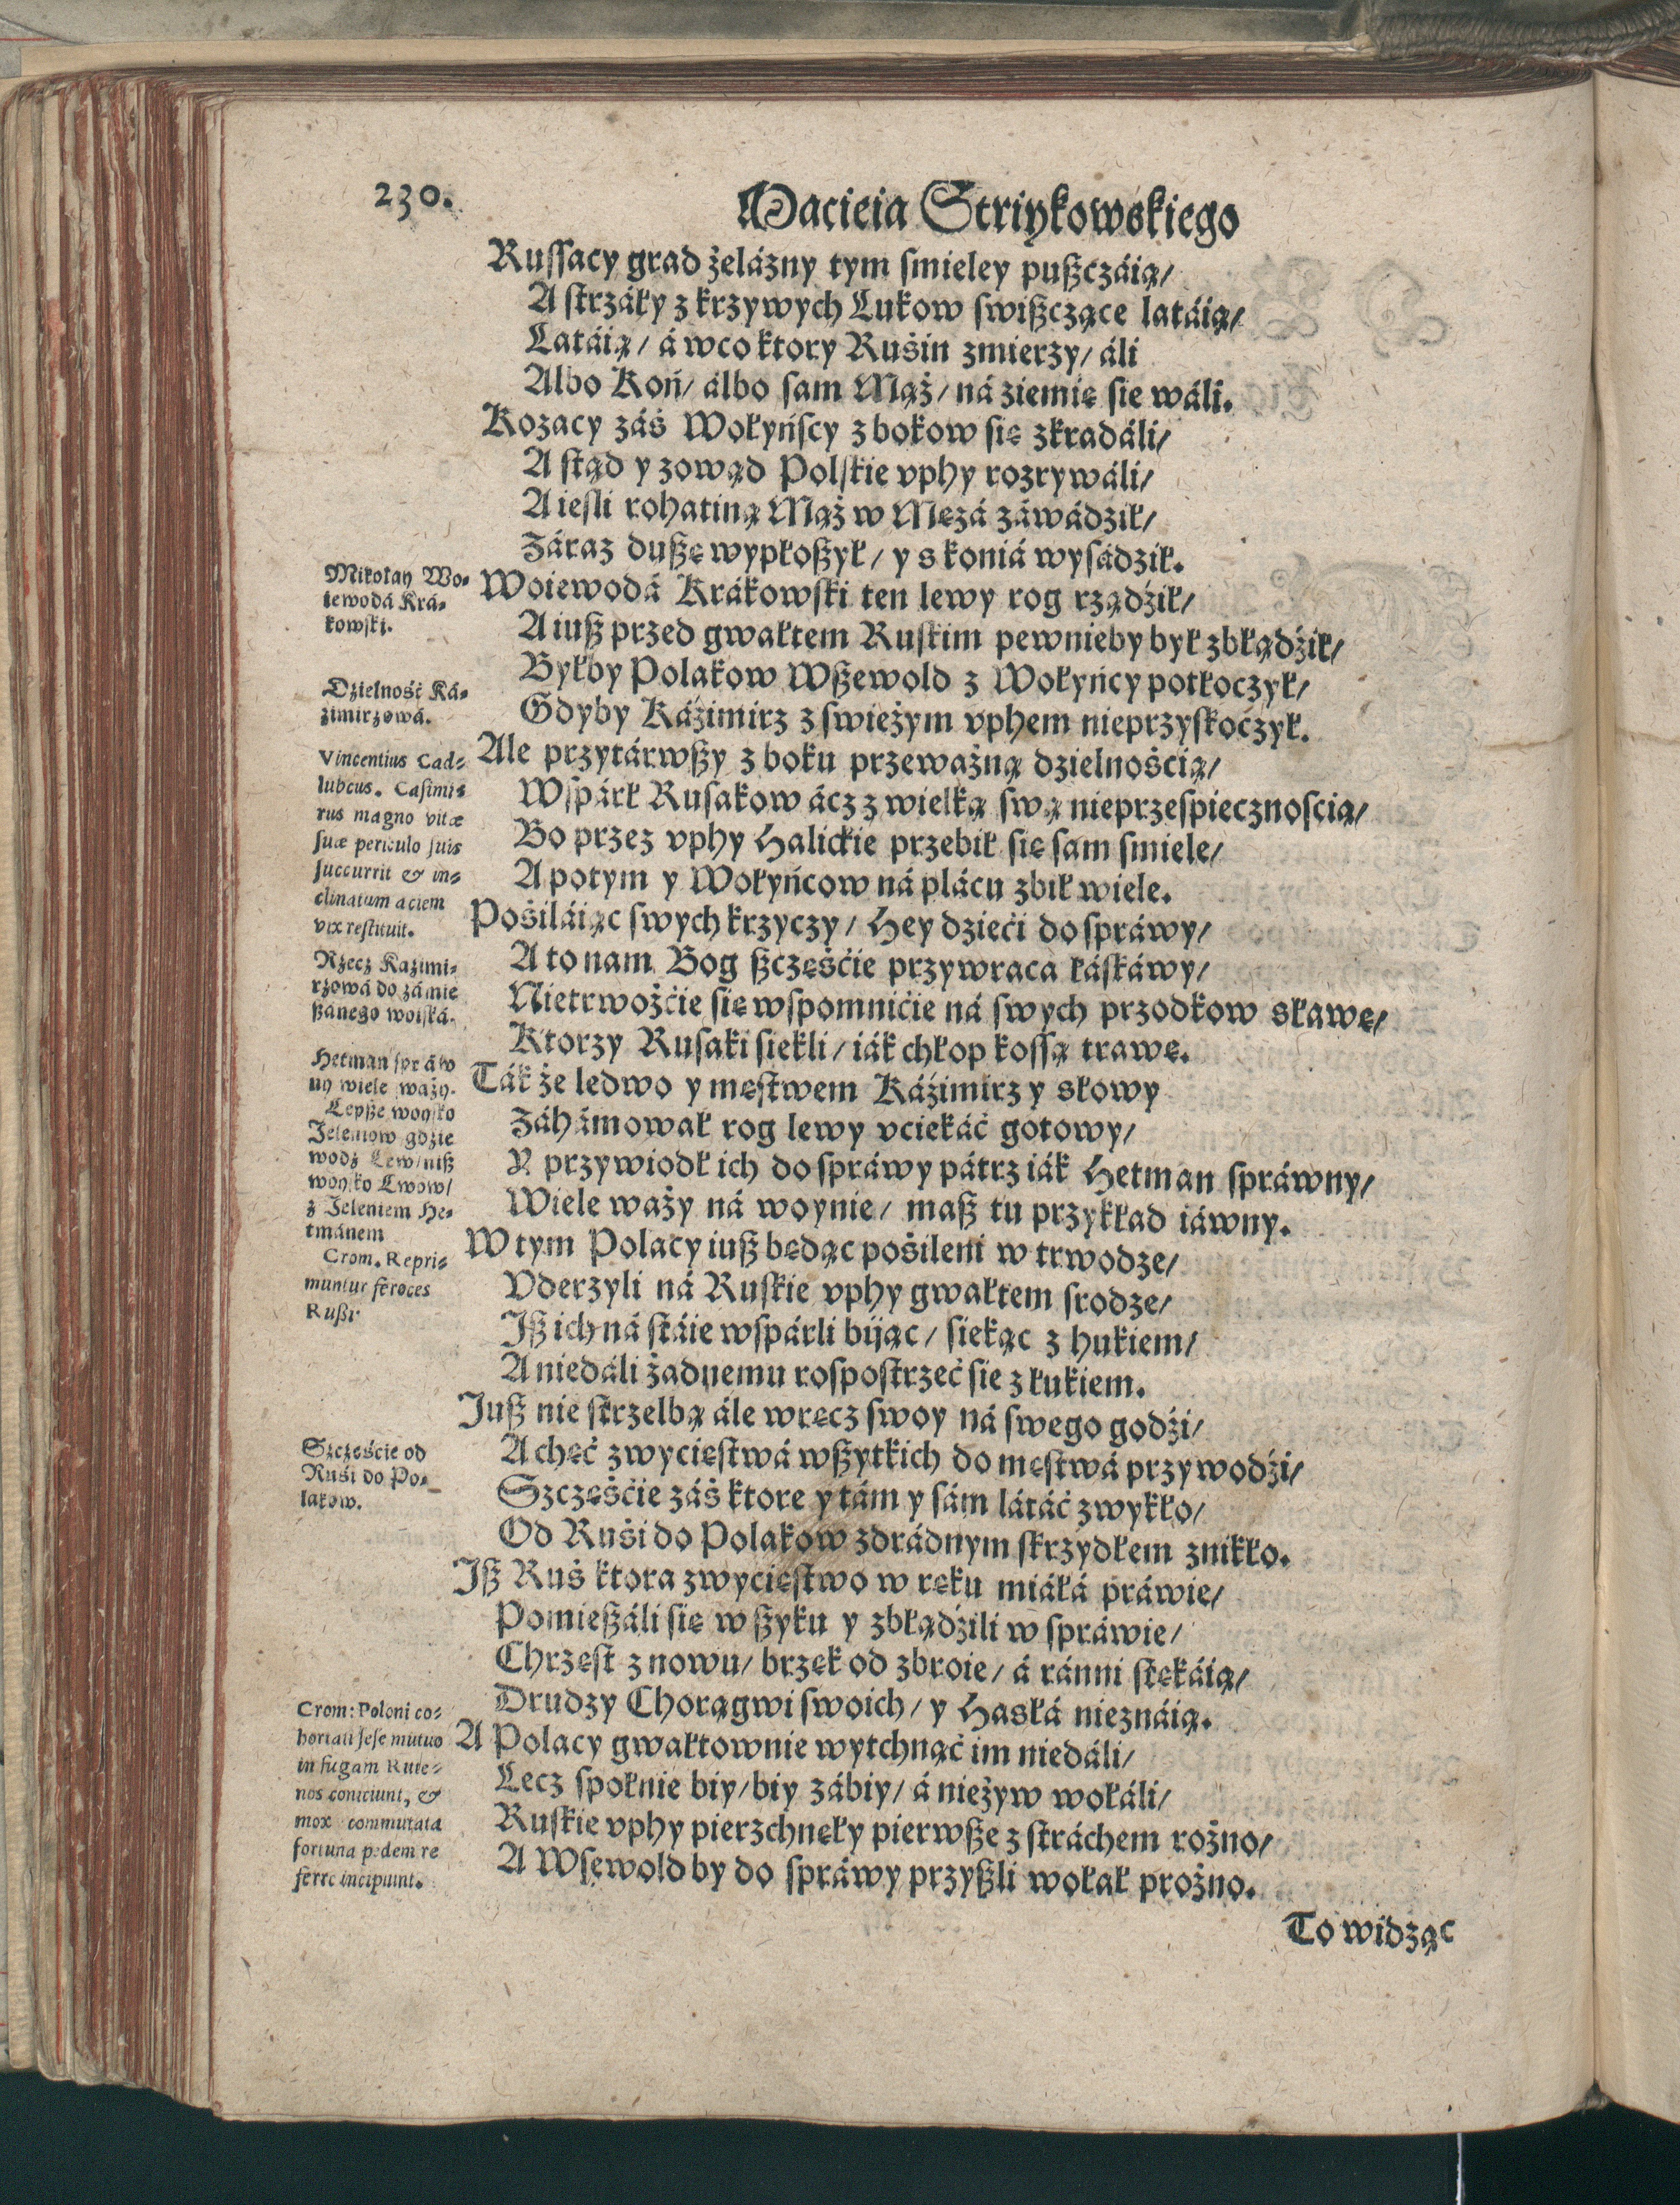 230.
Macieia Striykowskiego
Ruſſacy grad żelázny tym ſmieley pußczáią/
A ſtrzáły z krzywych Lukow ſwißczące latáią/
Latáią/ á wco ktory Ruśin zmierzy/ áli
Albo Koń/ álbo ſam Mąż/ ná ziemię ſie wáli.
Kozacy záś Wołyńſcy z bokow ſię zkradáli/
A ſtąd y zowąd Polſkie vphy rozrywáli/
A ieſli rohatiną Mąż w Mężá záwádził/
Záraz dußę wypłoßył/ y s koniá wyſádził.
Woiewodá Krákowſki ten lewy rog rządźił/
A iuß przed gwałtem Ruſkim pewnieby był zbłądźił/
Byłby Polakow Wßewold z Wołyńcy potłoczył/
Gdyby Káźimirz z ſwieżym vphem nieprzyſkoczył.
Ale przytárwßy z boku przeważną dzielnośćią/
Wſpárł Ruſakow ácz z wielką ſwą nieprzeſpiecznoſcią/
Bo przez vphy Halickie przebił ſię ſam ſmiele/
A potym y Wołyńcow ná plácu zbił wiele.
Pośiláiąc ſwych krzyczy/ Hey dzieći do ſpráwy/
A to nam Bog ßczęśćie przywraca łáſkáwy/
Nietrwożćie ſię wſpomnićie ná ſwych przodkow sławę/
Ktorzy Ruſaki ſiekli/ iák chłop koſſą trawę.
Ták że ledwo y męſtwem Káźimirz y słowy
Záhámował rog lewy vciekáć gotowy/
Y przywiodł ich do ſpráwy pátrz iák Hetman ſpráwny/
Wiele waży ná woynie/ maß tu przykład iáwny.
W tym Polacy iuß będąc pośileni w trwodze/
Vderzyli ná Ruſkie vphy gwałtem ſrodze/
Iß ich ná ſtáie wſpárli bijąc/ ſiekąc z hukiem/
A niedáli żadnemu roſpoſtrzeć ſie z łukiem.
Iuß nie ſtrzelbą ále wręcz ſwoy ná ſwego godźi/
A chęć zwycięſtwá wßytkich do męſtwá przywodźi/
Szczęśćie záś ktore y tám y ſám látáć zwykło/
Od Ruśi do Polakow zdrádnym ſkrzydłem znikło.
Iß Ruś ktora zwycięſtwo w ręku miáłá práwie/
Pomießáli ſię w ßyku y zbłądźili w ſpráwie/
Chrzęſt z nowu/ brzęk od zbroie/ á ránni ſtękáią/
Drudzy Chorągwi ſwoich/ y Hasłá nieznáią.
A Polacy gwałtownie wytchnąć im niedáli/
Lecz ſpołnie biy/ biy zábiy/ á nieżyw wołáli/
Ruſkie vphy pierzchnęły pierwße z ſtráchem rożno/
A Wſewold by do ſpráwy przyßli wołał prożno.
To widząc
Mikołay Wo-
iewodá Krá-
kowſki.
Dzielność Ká-
źimirzowá.
Vincentius Cad-
lubcus. Caſimi-
rus magno vitæ
ſuæ periculo ſuis
ſuccurrit & in-
clinatum aciem
vix reſtituit.
Rzecz Kaźimi-
rzowá do zámie
ßánego woiſká.
Hetman ſpráw
ny wiele waży.
Lepße woyſko
Jeleniow gdzie
wodz Lew/ niß
woyſko Lwow/
z Jeleniem He-
tmánem
Crom. Repri-
muntur feroces
Rußi.
Szczęśćie od
Ruśi do Po-
lakow.
Crom: Poloni co-
hortati ſeſe mutuo
in fugam Rute-
nos coniciunt, &
mox commutata
fortuna pedem re
ferre incipiunt.